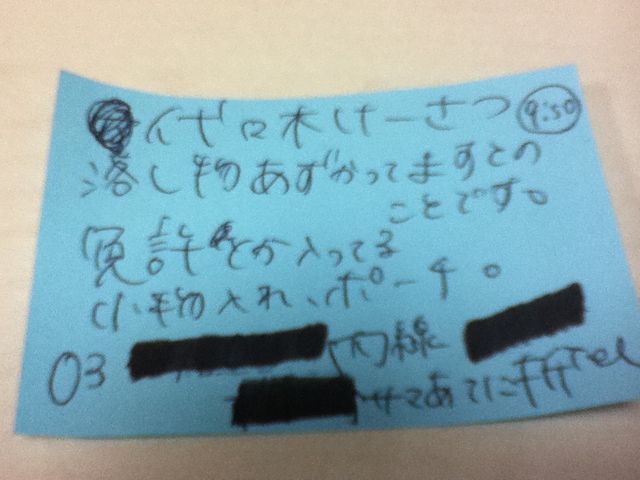 代々木けーさつ 9:50
落し物あずかってますとの
ことです。
免許とか入ってる
小物入れ、ポーチ。
03 内線
サマあてに折Tel